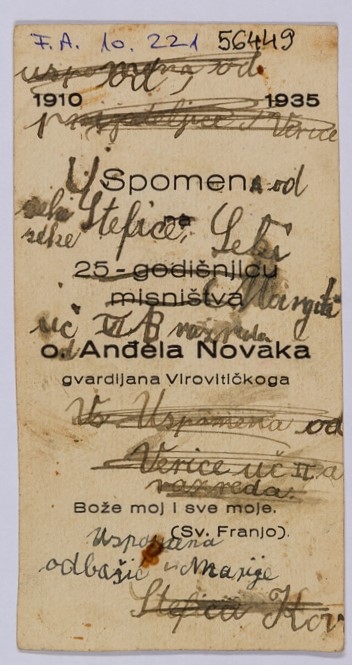 F.A. 10.221 56449
uspomena od
1910 1935
prijateljice Verice
USpomena od
seke Stefice, Seki
seke na
25-godišnjicu
misništva Margiti
uč IV B razreda
od
o. Anđela Novaka
gvardijana Virovitičkoga
Uspomena od
Verice uč II a
razreda.
Bože moj i sve moje.
(Sv. Franjo).
Uspomena
od bašić Marije
Stefica Kov